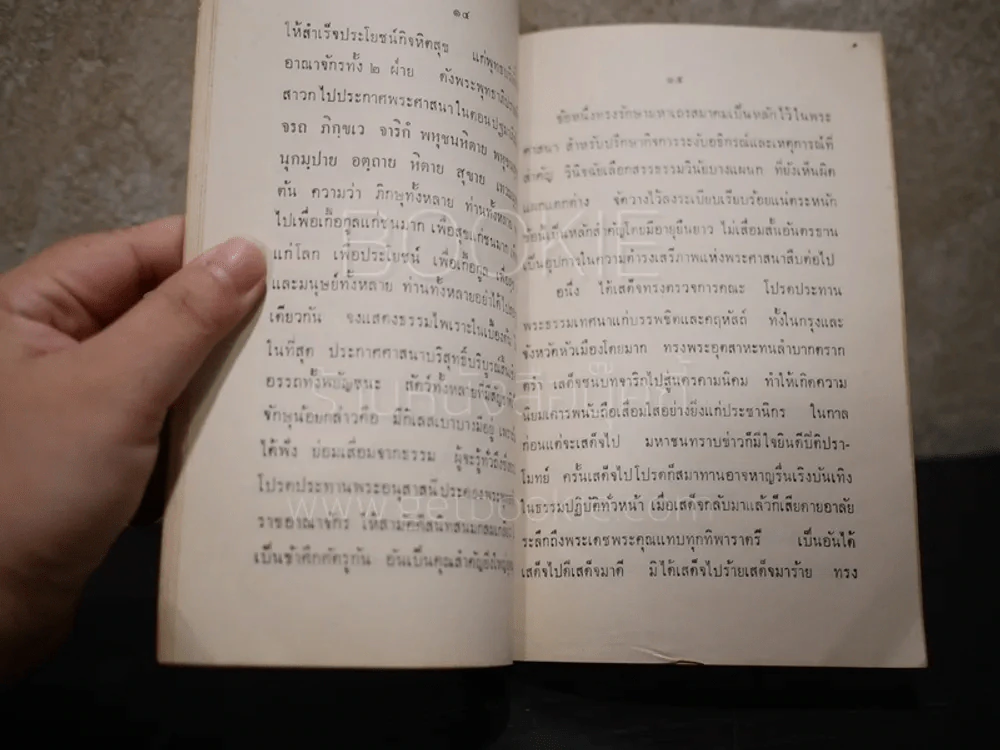 ๑๔
ให้สำเร็จประโยชน์กิจหิตสุข แก่พุทธ
อาณาจักรทั้ง ๒ ฝ่าย ดังพระพุทธ
สาวกไปประกาศพระศาสนาในตอนปฐม
จรถ ภิกฺขเว จาริกํ พหุชนหิตาย
นุกมฺปาย อตฺถาย หิตาย สุขาย
ต้น ความว่า ภิกษุทั้งหลาย ท่านทั้งหลาย
ไปเพื่อเกื้อกูลแก่ชนมาก เพื่อสุขแก่ชนมาก
แก่โลก เพื่อประโยชน์ เพื่อเกื้อกูล
และมนุษย์ทั้งหลาย ท่านทั้งหลายอย่าได้ไป
เดียวกัน จงแสดงธรรมไพเราะในเบื้องต้น
ในที่สุด ประกาศศาสนาบริสุทธิ์บริบูรณ์
อรรถทั้งพยัญชนะ สัตว์ทั้งหลายที่มี
จักษุน้อยกล่าวคือ มีกิเลสเบาบางมีอยู่
ได้ฟัง ย่อมเสื่อมจากธรรม ผู้จะรู้ทั่วถึง
โปรดประทานพระอนุสาสนีประคอง
ราชอาณาจักร ให้สามัคคีสนิทสนมกลมเกลียว
เป็นข้าศึกศัตรูกัน อันเป็นคุณสำคัญยิ่งใหญ่
๑๕
ข้อหนึ่งทรงรักษามหาเถรสมาคมเป็นหลักไว้ในพระ
ศาสนา สำหรับปรึกษากิจการระงับอธิกรณ์และเหตุการณ์ที่
สำคัญ วินิจฉัยเลือกสรรธรรมวินัยบางแผนก ที่ยังเห็นผิด
แผกแตกต่าง จัดวางไว้ลงระเบียบเรียบร้อยแน่ตระหนัก
ข้อนี้เป็นหลักสำคัญโดยมีอายุยืนยาว ไม่เสื่อมสิ้นอันตรธาน
เป็นอุปการในความดำรงเสรีภาพแห่งพระศาสนาสืบต่อไป
อนึ่ง ได้เสด็จทรงตรวจการคณะ โปรดประทาน
พระธรรมเทศนาแก่บรรพชิตและคฤหัสถ์ ทั้งในกรุงและ
จังหวัดหัวเมืองโดยมาก ทรงพระอุตสาหะทนลำบากตราก
ตรำ เสด็จชนบทจาริกไปสู่นครคามนิคม ทำให้เกิดความ
นิยมเคารพนับถือเลื่อมใสอย่างยิ่งแก่ประชานิกร ในกาล
ก่อนแต่จะเสด็จไป มหาชนทราบข่าวก็มีใจยินดีปีติปรา-
โมทย์ ครั้นเสด็จไปโปรดก็สมาทานอาจหาญรื่นเริงบันเทิง
ในธรรมปฏิบัติทั่วหน้า เมื่อเสด็จกลับมาแล้วก็เสียดายอาลัย
ระลึกถึงพระเดชพระคุณแทบทุกทิพาราตรี เป็นอันได้
เสด็จไปดีเสด็จมาดี มิได้เสด็จไปร้ายเสด็จมาร้าย ทรง
BOOKIE